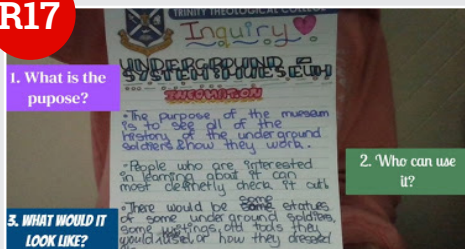 R17
TRINITY THEOLOGICAL COLLEGE
Inquiry
UNDERGROUND
SYSTEM MUSEUM
INFOMATION
1. What is the
pupose?
•The purpose of the museam
is to see all of the
history of the underground
soldiers & how they work.
•People who are interested
in learning about it can
most definetly check it out
2. Who can use
it?
•There would be some estatues
of some underground soldies,
some writings, old tools they
would used or how they dressed
3. WHAT WOULD IT
LOOK LIKE?